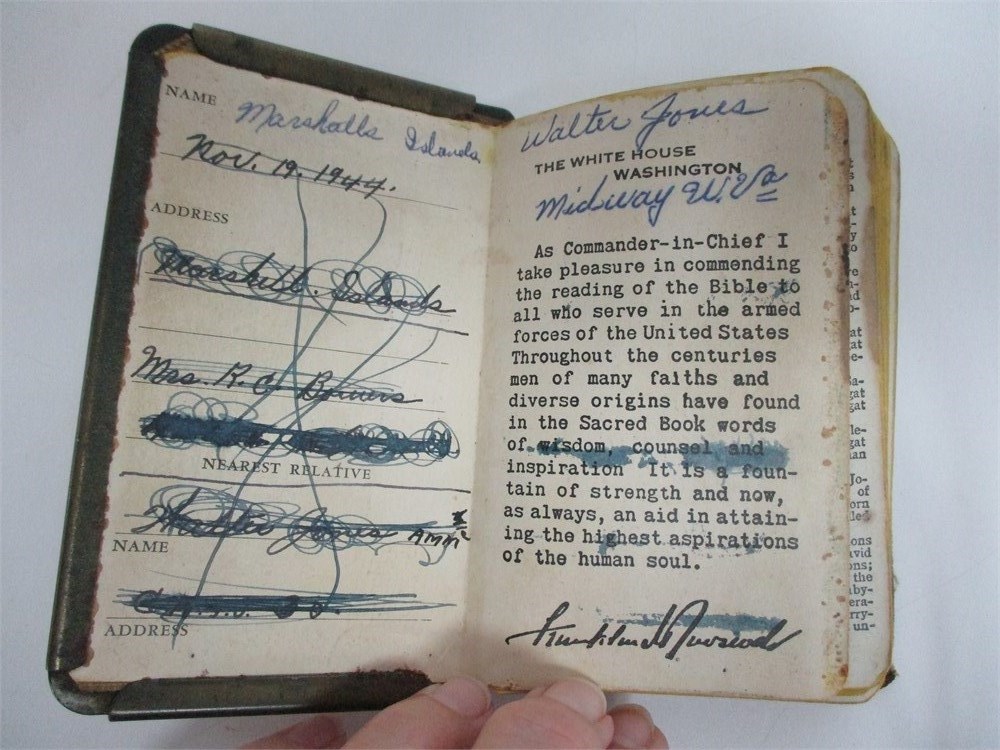 NAME
Marshalls Islands
Nov. 19. 1944.
ADDRESS
Marshall. Islands
Mrs. R. C. Bowers
NEAREST RELATIVE
Jones
NAME
ADDRESS
Walter Jones
THE WHITE HOUSE
WASHINGTON
Midway W. Va
As Commander-in-Chief I
take pleasure in commending
the reading of the Bible to
all who serve in the armed
forces of the United States
Throughout the centuries
men of many faiths and
diverse origins have found
in the Sacred Book words
of wisdom, counsel and
inspiration It is a foun-
tain of strength and now,
as always, an aid in attain-
ing the highest aspirations
of the human soul.
Franklin D Roosevelt